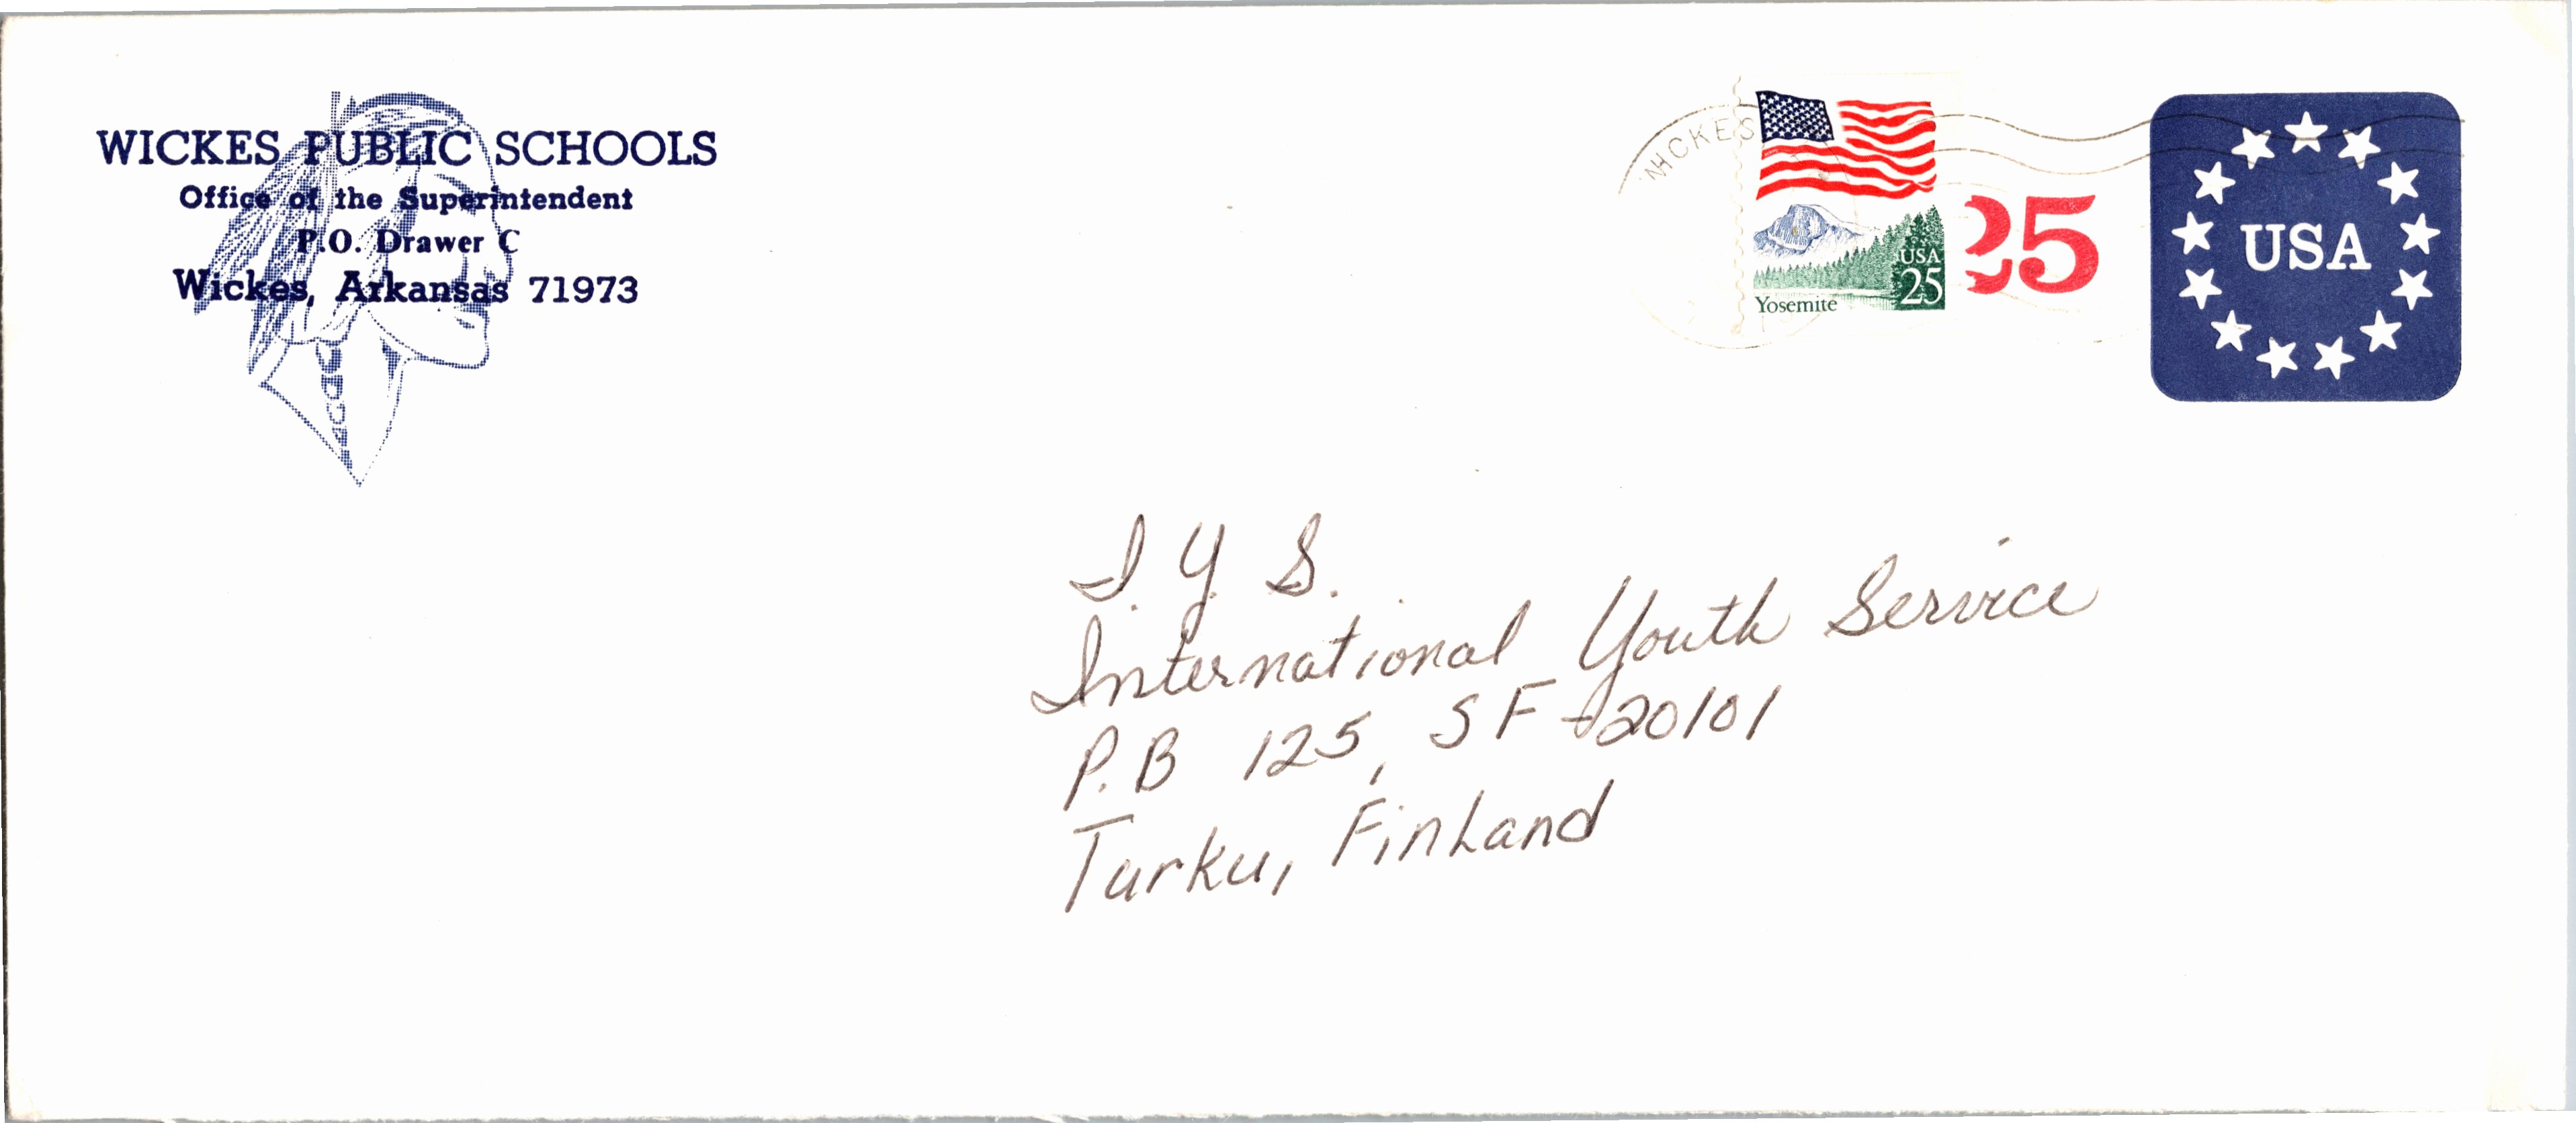 WICKES PUBLIC SCHOOLS
Office of the Superintendent
P.O. Drawer C
Wickes, Arkansas 71973
WICKES
USA
25
Yosemite
25
USA
I. Y. S.
International Youth Service
P.B 125, SF-20101
Turku, Finland